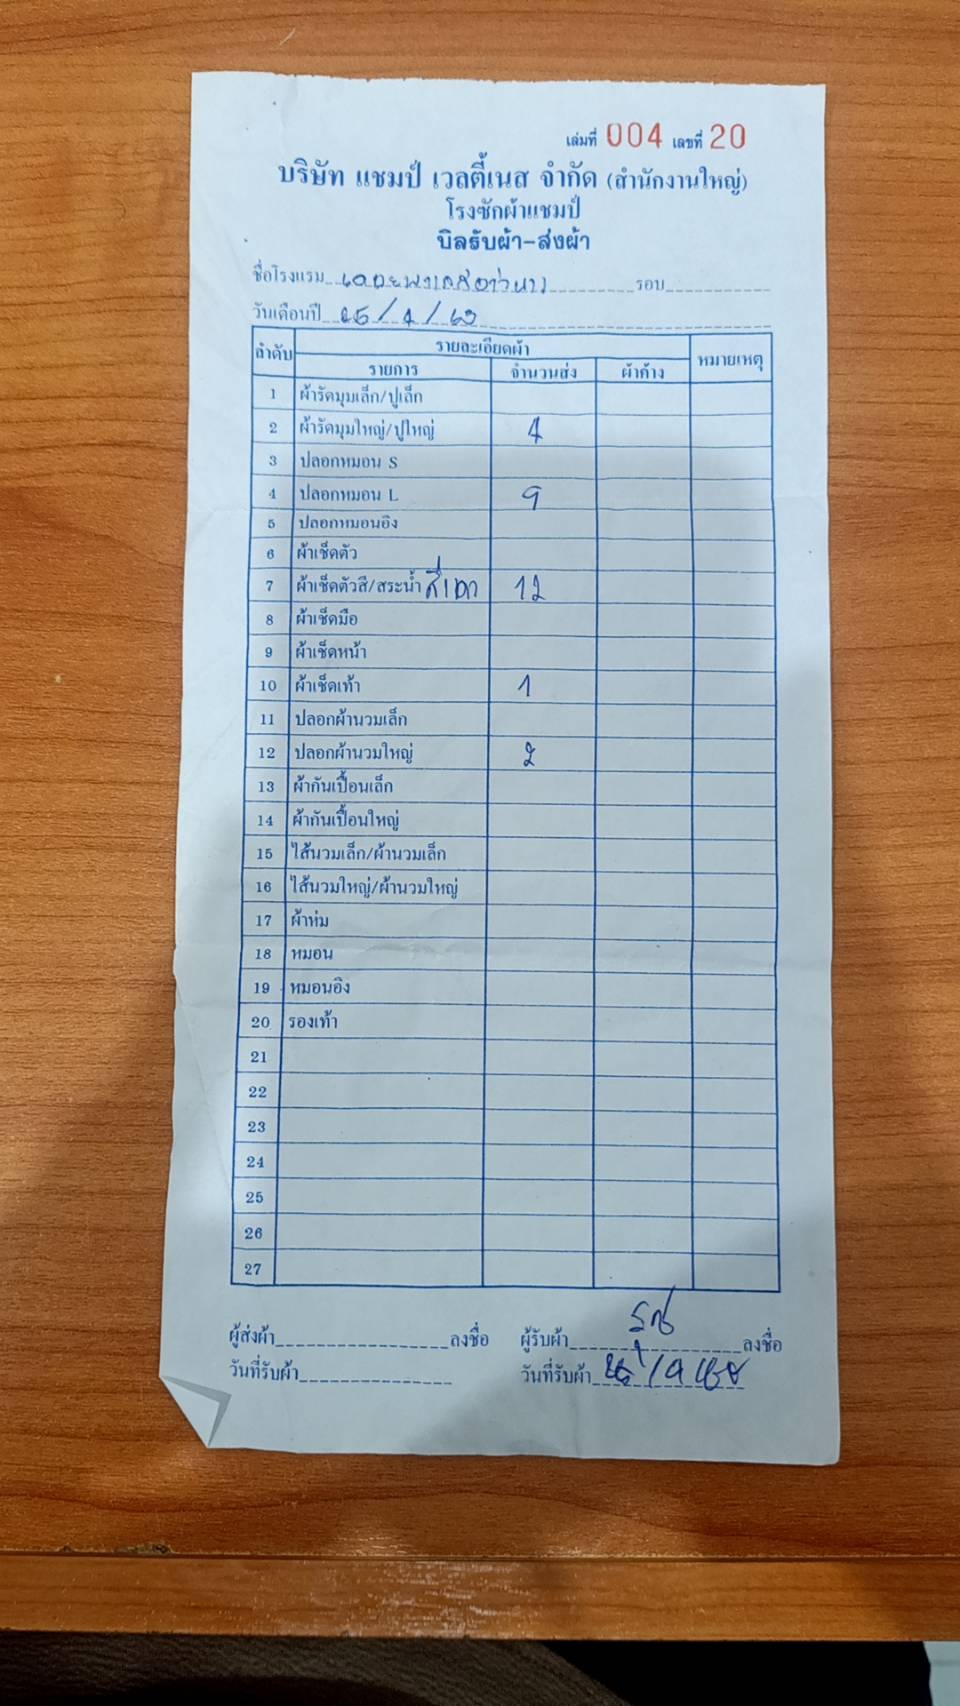 เล่มที่ 004 เลขที่ 20
บริษัท แชมป์ เวลตี้เนส จำกัด (สำนักงานใหญ่)
โรงซักผ้าแชมป์
บิลรับผ้า-ส่งผ้า
ชื่อโรงแรม รอบ
วันเดือนปี
ลำดับ รายละเอียดผ้า หมายเหตุ
รายการ จำนวนส่ง ผ้าค้าง
1 ผ้ารัดมุมเล็ก/ปูเล็ก
2 ผ้ารัดมุมใหญ่/ปูใหญ่ 4
3 ปลอกหมอน S
4 ปลอกหมอน L 9
5 ปลอกหมอนอิง
6 ผ้าเช็ดตัว
7 ผ้าเช็ดตัวสี/สระน้ำ สีเทา 12
8 ผ้าเช็ดมือ
9 ผ้าเช็ดหน้า
10 ผ้าเช็ดเท้า 1
11 ปลอกผ้านวมเล็ก
12 ปลอกผ้านวมใหญ่ 2
13 ผ้ากันเปื้อนเล็ก
14 ผ้ากันเปื้อนใหญ่
15 ไส้นวมเล็ก/ผ้านวมเล็ก
16 ไส้นวมใหญ่/ผ้านวมใหญ่
17 ผ้าห่ม
18 หมอน
19 หมอนอิง
20 รองเท้า
21
22
23
24
25
26
27
ผู้ส่งผ้า ลงชื่อ ผู้รับผ้า ลงชื่อ
วันที่รับผ้า วันที่รับผ้า